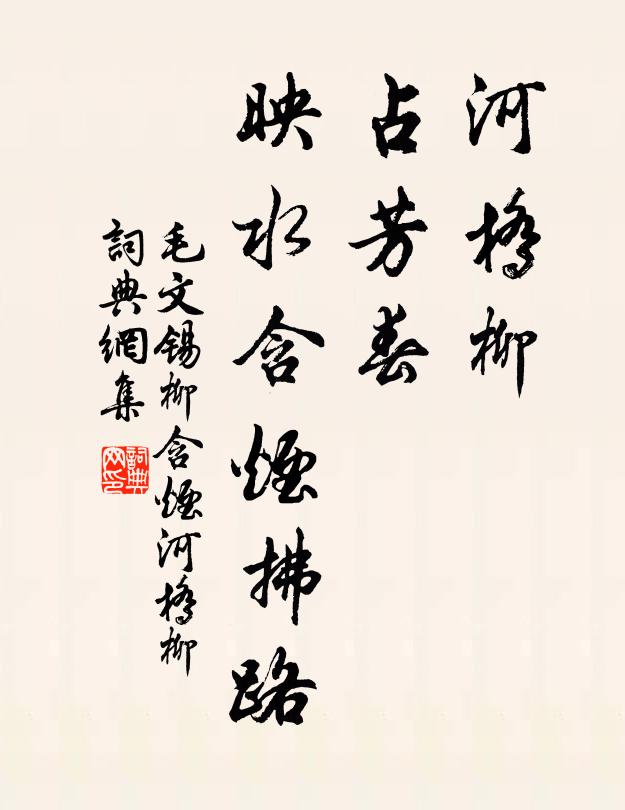 河橋柳
占芳春
映水含煙拂路
毛文錫柳含煙河橋柳
詞典網集
詞典网印